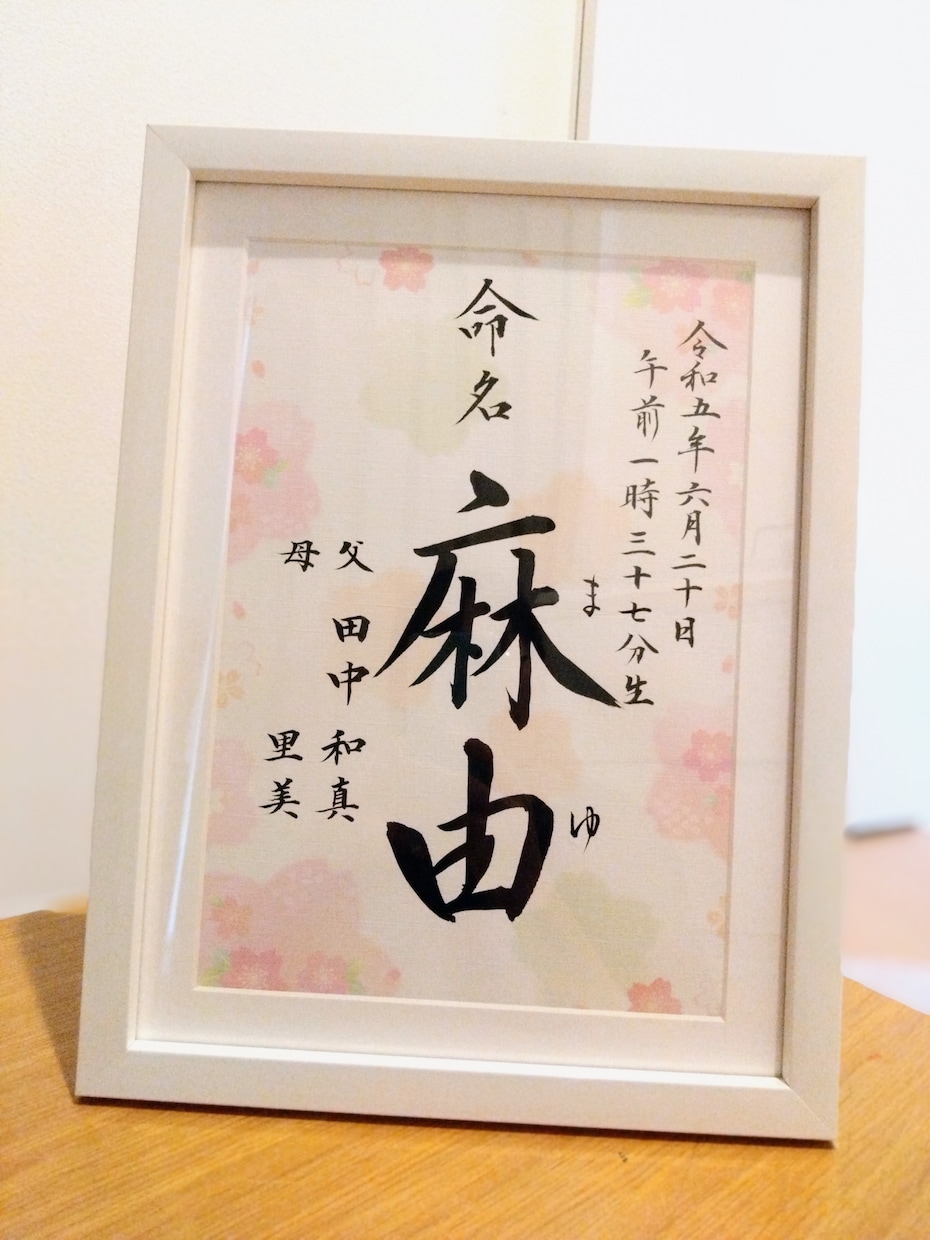 令和五年六月二十日
午前一時三十七分生
命名
麻由
まゆ
父 田中 和真
母 里美